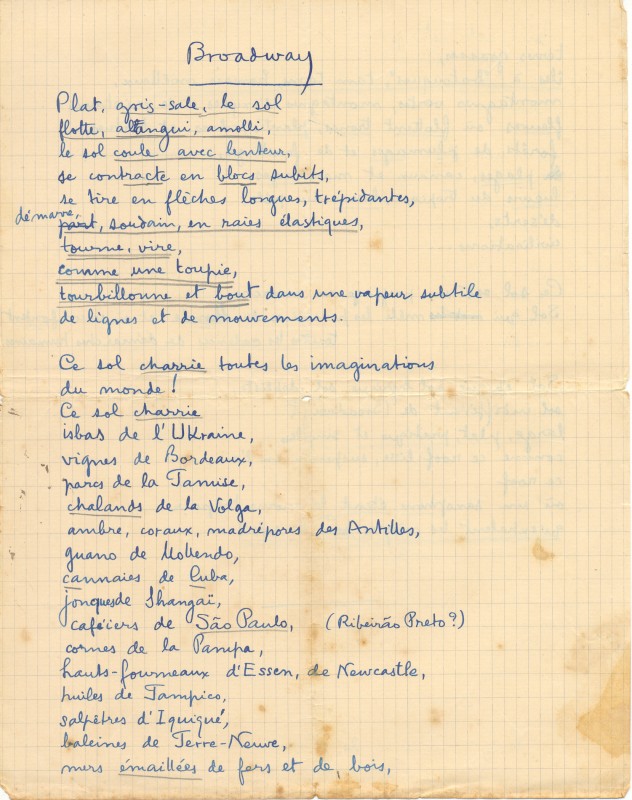 Broadway
Plat, gris-sale, le sol
flotte, alangui, amolli,
le sol coule avec lenteur,
se contracte en blocs subits,
se tire en flèches longues, trépidantes,
démarre,
part, soudain, en raies élastiques,
tourne, vire,
comme une toupie,
tourbillonne et bout dans une vapeur subtile
de lignes et de mouvements.
Ce sol charrie toutes les imaginations
du monde!
Ce sol charrie
isbas de l'Ukraine,
vignes de Bordeaux,
parcs de la Tamise,
chalands de la Volga,
ambre, coraux, madrépores des Antilles,
guano de Mollendo,
cannaies de Cuba,
jonques de Shangaï,
caféiers de São Paulo, (Ribeirão Preto?)
cornes de la Pampa,
hauts-fourneaux d'Essen, de Newcastle,
huiles de Tampico,
salpêtres d'Iquiqué,
baleines de Terre-Neuve,
mers émaillées de fers et de, bois,